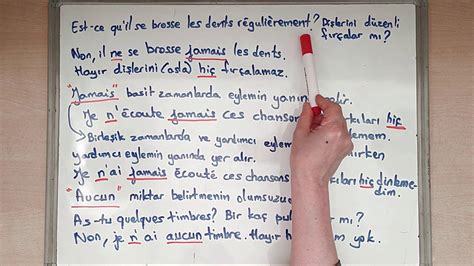 Est-ce qu'il se brosse les dents régulièrement? Dişlerini düzenli
fırçalar mı?
Non, il ne se brosse jamais les dents.
Hayır dişlerini (asla) hiç fırçalamaz.
"Jamais" basit zamanlarda eylemin yanın
Je n'écoute jamais ces chanson kıları hiç
emem.
Birleşik zamanlarda ve yardımcı eylem irken
yardımcı eylemin yanında yer alır.
Je n'ai jamais écouté ces chansons kıları hiç dinleme-
dim.
"Aucun" miktar belirtmenin olumsuzu
As-tu quelques timbres? Bir kaç pu mı?
Non, je n'ai aucun timbre. Hayır h m yok.